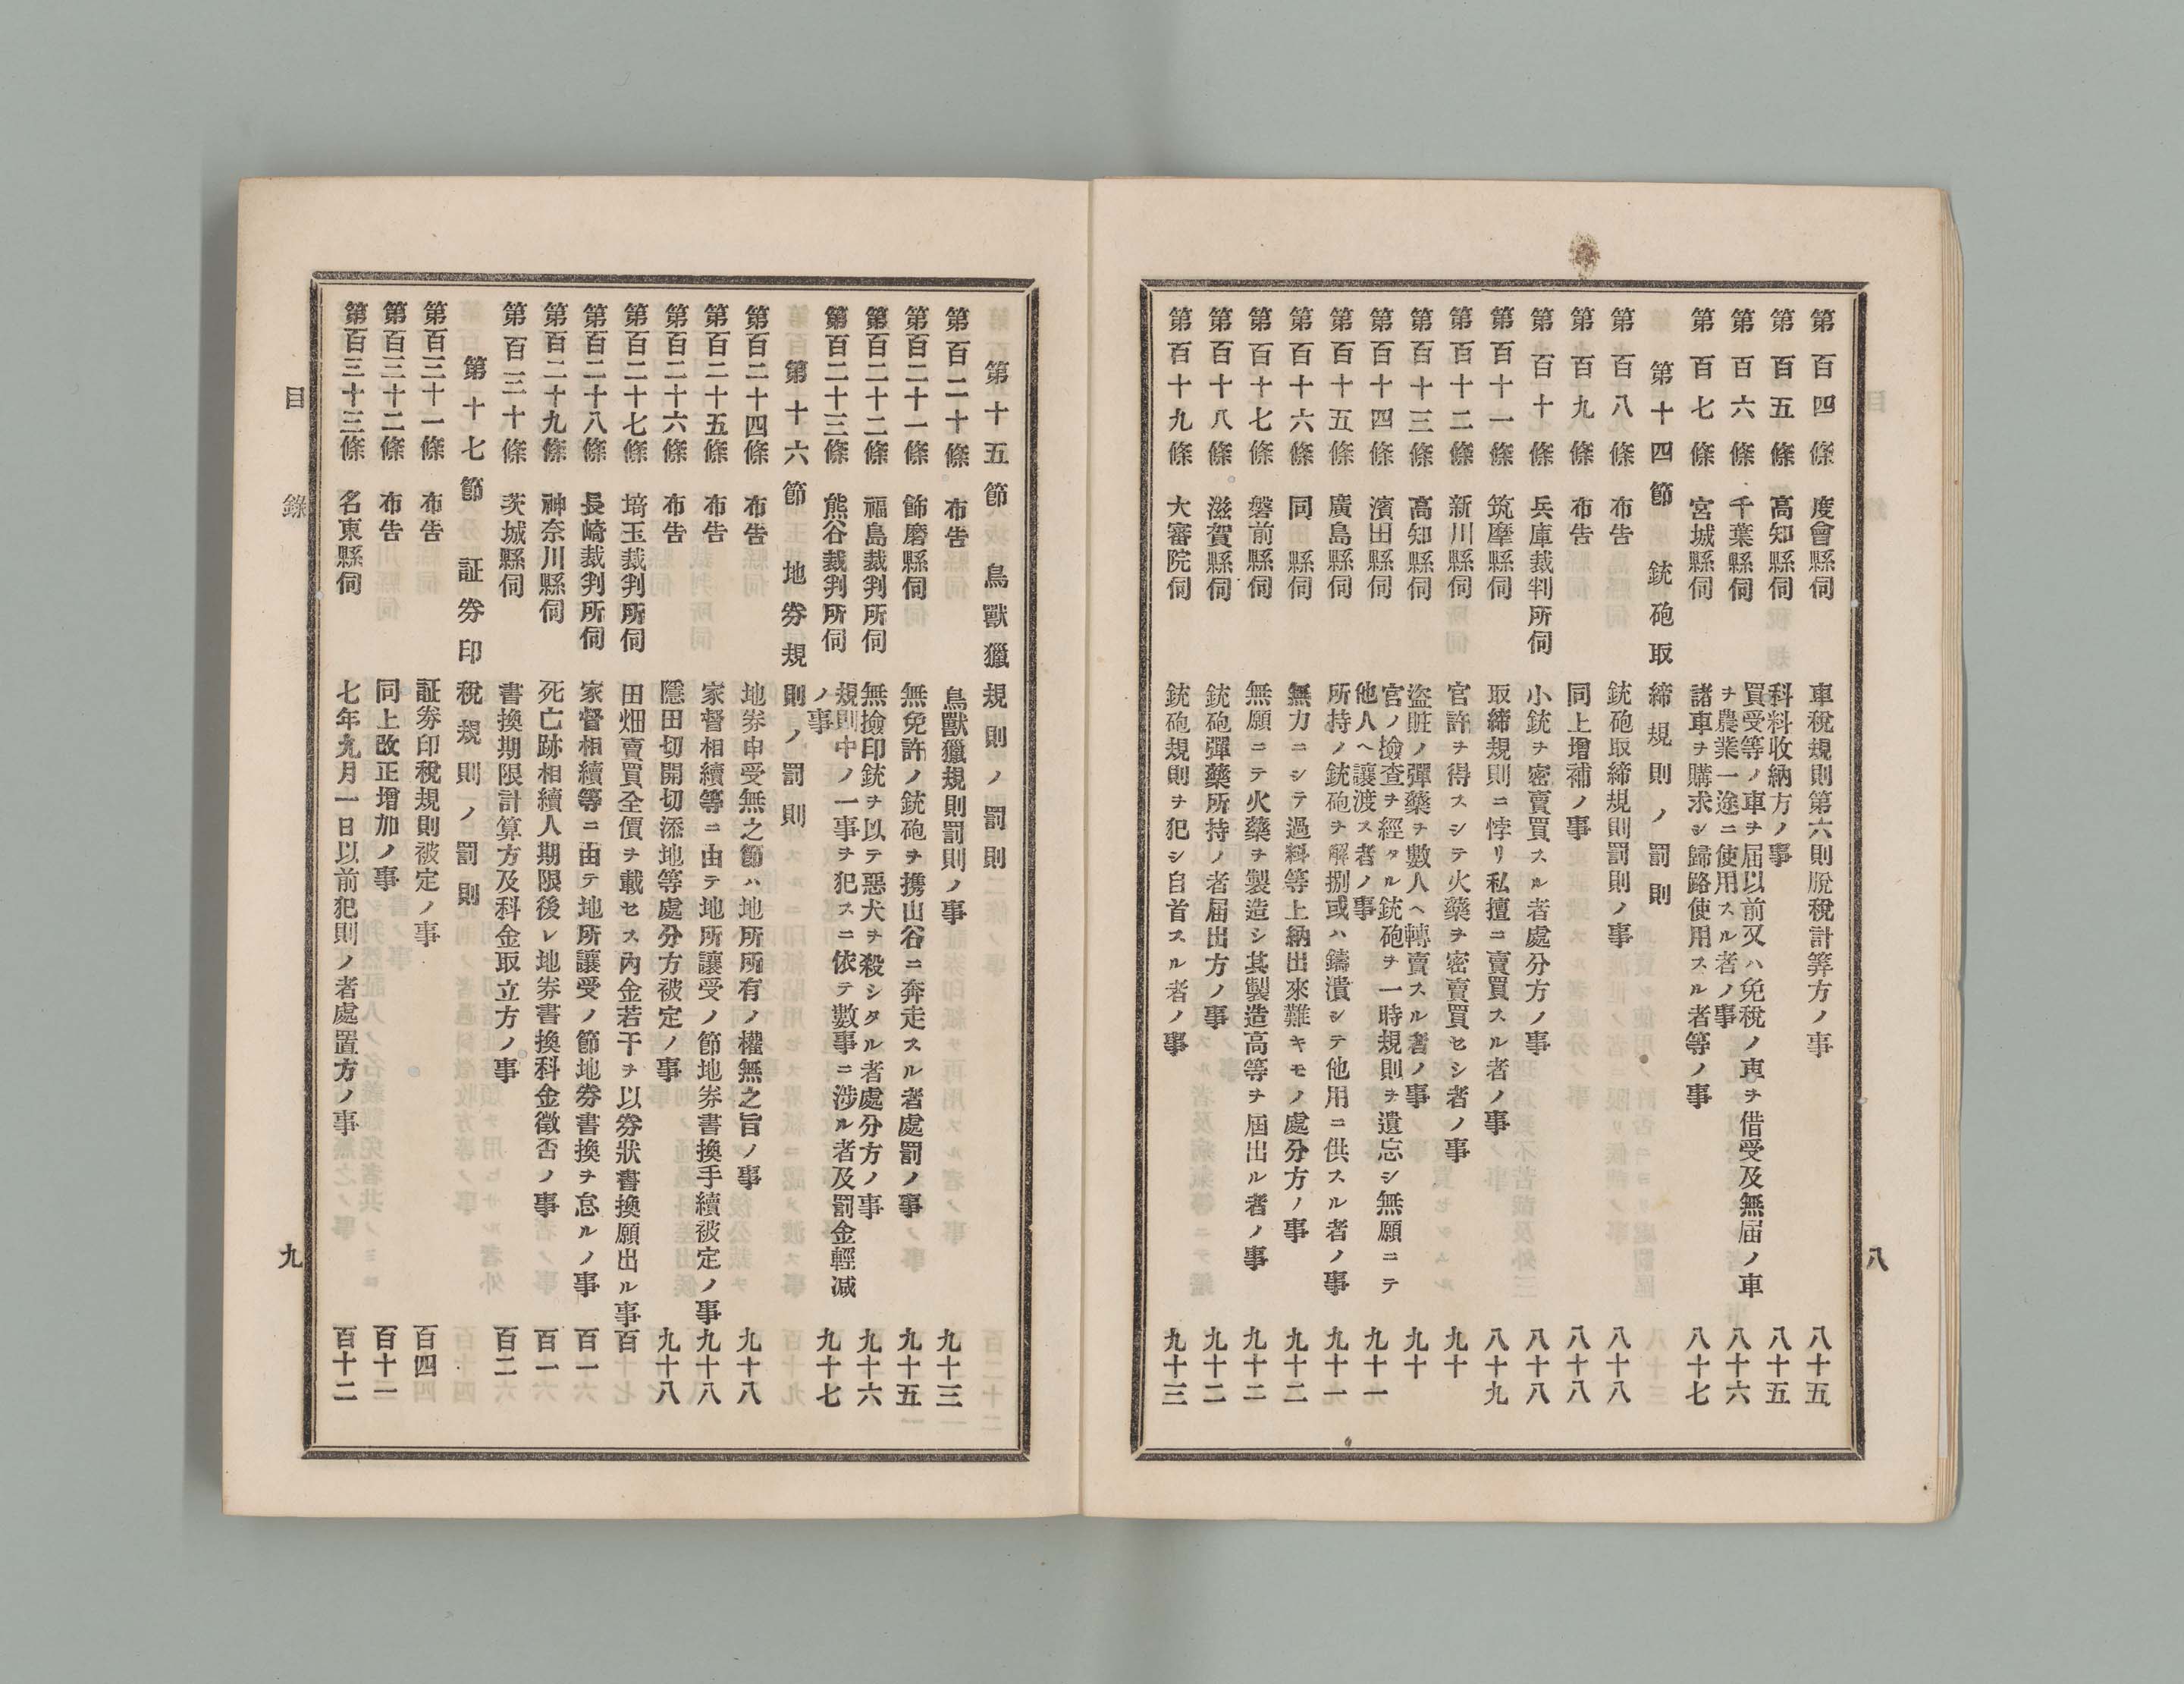 第百四條 度會縣伺 車稅規則第六則脫稅計筭方ノ事 八十五
第百五條 高知縣伺 科料收納方ノ事 八十五
第百六條 千葉縣伺 買受等ノ車ヲ届以前又ハ免稅ノ車ヲ借受及無届ノ車
ヲ農業一途ニ使用スル者ノ事 八十六
第百七條 宮城縣伺 諸車ヲ購求シ歸路使用スル者等ノ事 八十七
第十四節 銃砲取締規則ノ罰則
第百八條 布告 銃砲取締規則罰則ノ事 八十八
第百九條 布告 同上增補ノ事 八十八
第百十條 兵庫裁判所伺 小銃ヲ密賣買スル者處分方ノ事 八十八
第百十一條 筑摩縣伺 取締規則ニ悖リ私擅ニ賣買スル者ノ事 八十九
第百十二條 新川縣伺 官許ヲ得スシテ火藥ヲ密賣買セシ者ノ事 九十
第百十三條 高知縣伺 盜賍ノ彈藥ヲ數人ヘ轉賣スル者ノ事 九十
第百十四條 濱田縣伺 官ノ撿查ヲ經タル銃砲ヲ一時規則ヲ遺忘シ無願ニテ
他人ヘ讓渡ス者ノ事 九十一
第百十五條 廣島縣伺 所持ノ銃砲ヲ解捌或ハ鑄潰シテ他用ニ供スル者ノ事 九十一
第百十六條 同縣伺 無力ニシテ過料等上納出來難キモノ處分方ノ事 九十二
第百十七條 磐前縣伺 無願ニテ火藥ヲ製造シ其製造高等ヲ屆出ル者ノ事 九十二
第百十八條 滋賀縣伺 銃砲彈藥所持ノ者届出方ノ事 九十二
第百十九條 大審院伺 銃砲規則ヲ犯シ自首スル者ノ事 九十三
八
第十五節 鳥獸獵規則ノ罰則
第百二十條 布告 鳥獸獵規則罰則ノ事 九十三
第百二十一條 飾磨縣伺 無免許ノ銃砲ヲ携山谷ニ奔走スル者處罰ノ事 九十五
第百二十二條 福島裁判所伺 無撿印銃ヲ以テ惡犬ヲ殺シタル者處分方ノ事 九十六
第百二十三條 熊谷裁判所伺 規則中ノ一事ヲ犯スニ依テ數事ニ涉ル者及罰金輕减
ノ事 九十七
第十六節 地劵規則ノ罰則
第百二十四條 布告 地劵申受無之節ハ地所所有ノ權無之旨ノ事 九十八
第百二十五條 布告 家督相續等ニ由テ地所讓受ノ節地劵書換手續被定ノ事 九十八
第百二十六條 布告 隱田切開切添地等處分方被定ノ事 九十八
第百二十七條 埼玉裁判所伺 田畑賣買全價ヲ載セス內金若干ヲ以劵狀書換願出ル事 百
第百二十八條 長崎裁判所伺 家督相續等ニ由テ地所讓受ノ節地劵書換ヲ怠ルノ事 百一
第百二十九條 神奈川縣伺 死亡跡相續人期限後レ地劵書換科金徵否ノ事 百一
第百三十條 茨城縣伺 書換期限計算方及科金取立方ノ事 百二
第十七節 証劵印稅規則ノ罰則
第百三十一條 布告 証劵印稅規則被定ノ事 百四
第百三十二條 布告 同上改正增加ノ事 百十一
第百三十三條 名東縣伺 七年九月一日以前犯則ノ者處置方ノ事 百十二
目錄 九